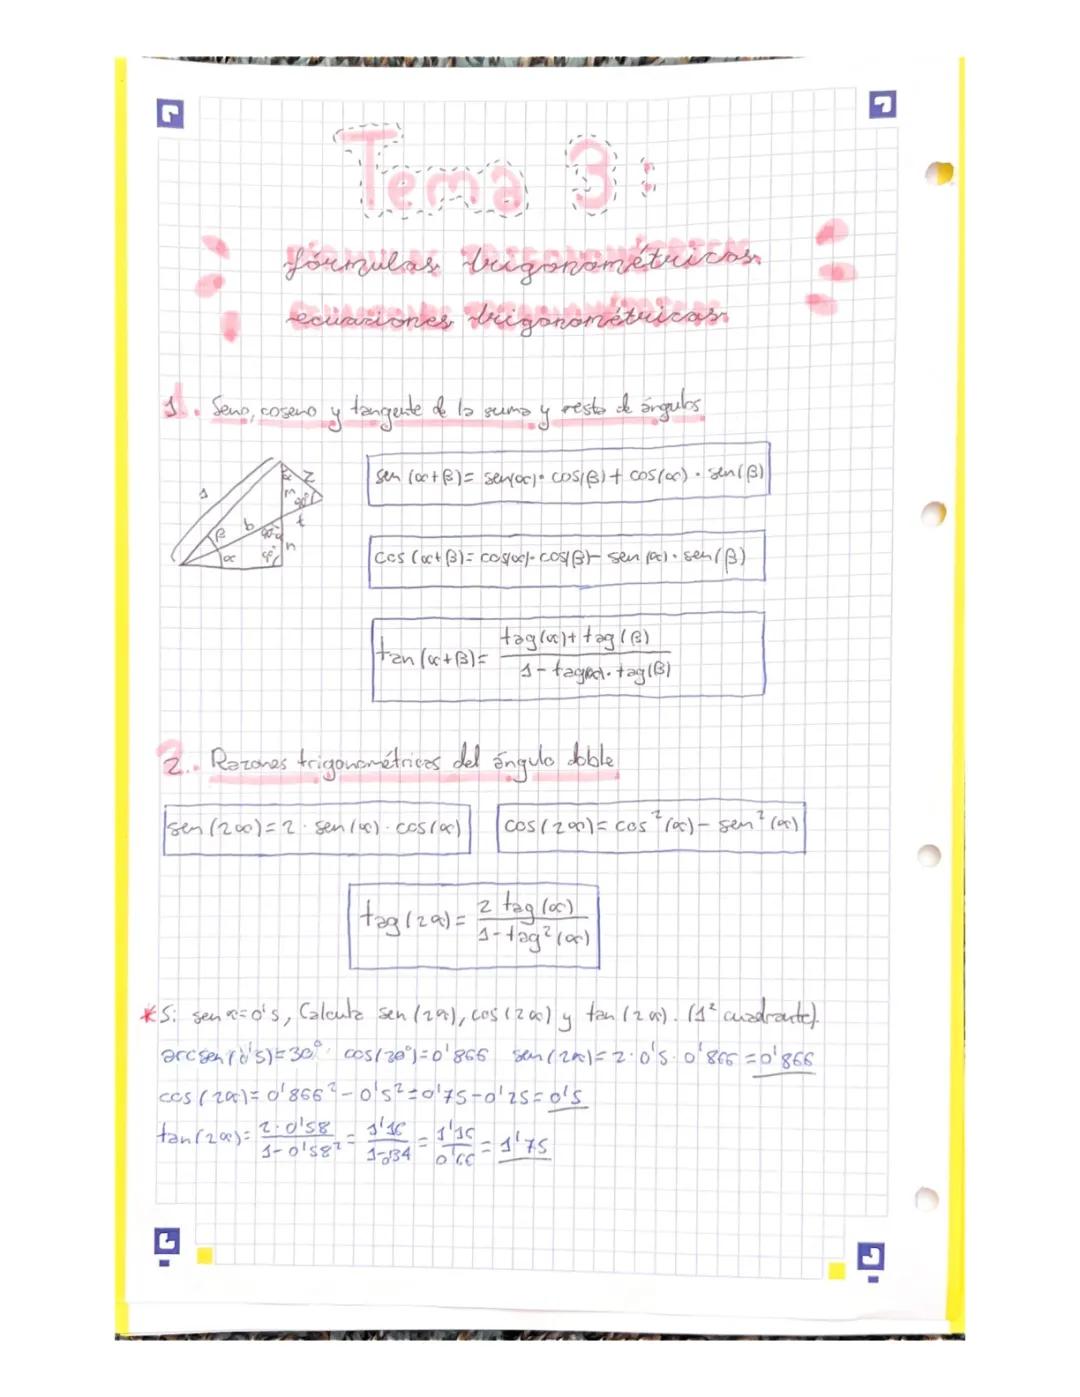 Tema 3:
fórmulas trigonométricas
ecuaciones trigonométricas
1. Seno, coseno y tangente de la suma y resta de ángulos
sen (α+β)= sen(α)· cos(β)+ cos(α) · sen(β)
cos (α+β)= cos(α)· cos(β)- sen (α)· sen(β)
tan (α+β)= tag(α)+ tag(β) / 1- tag(α)· tag(β)
1
z
α
m
90°
b
t
β
n
α
2. Razones trigonométricas del ángulo doble
sen (2α)= 2 · sen(α) · cos(α)
cos (2α)= cos²(α)- sen²(α)
tag (2α)= 2 tag(α) / 1- tag²(α)
*Si sen α=0'5, Calcula sen (2α), cos (2α) y tan (2α). (1º cuadrante).
arcsen (0'5)= 30° cos(30°)=0'866 sen (2α)= 2·0'5·0'866 =0'866
cos (2α)= 0'866²-0'5²=0'75-0'25= 0'5
tan(2α)= 2·0'58 / 1-0'58² = 1'16 / 1-0'34 = 1'16 / 0'66 = 1'75